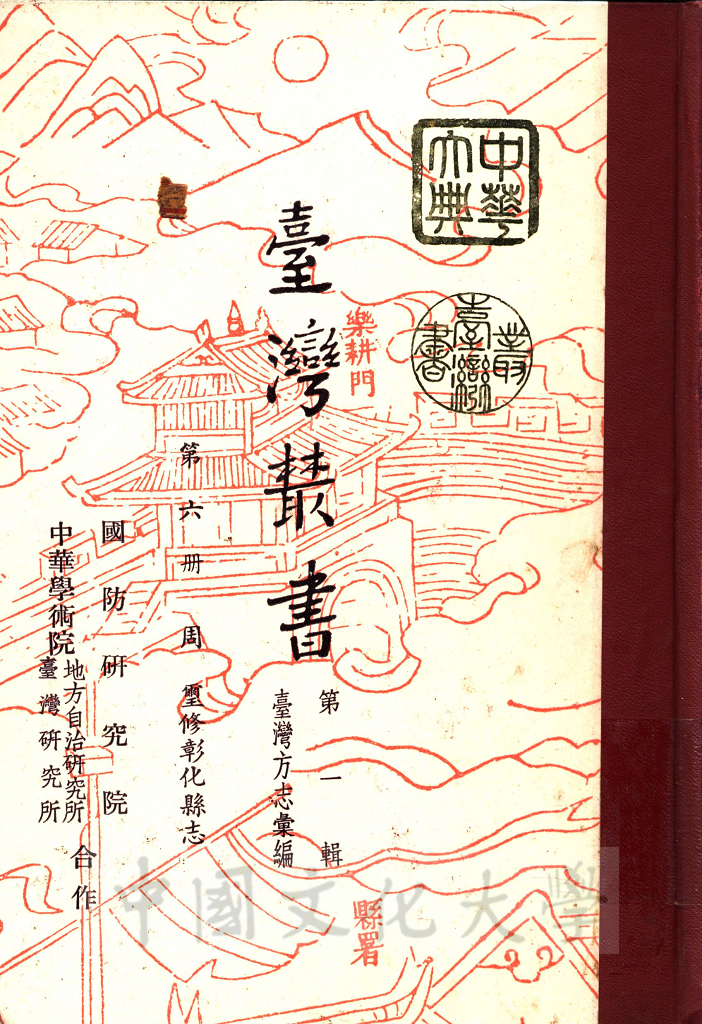 中華
大典
叢
臺灣
書
臺灣叢書
樂耕門
第一輯
臺灣方志彙編
第六册 周璽修彰化縣志
國防研究院
中華學術院
地方自治研究所
臺灣研究所
合作
縣署
中國文化大學